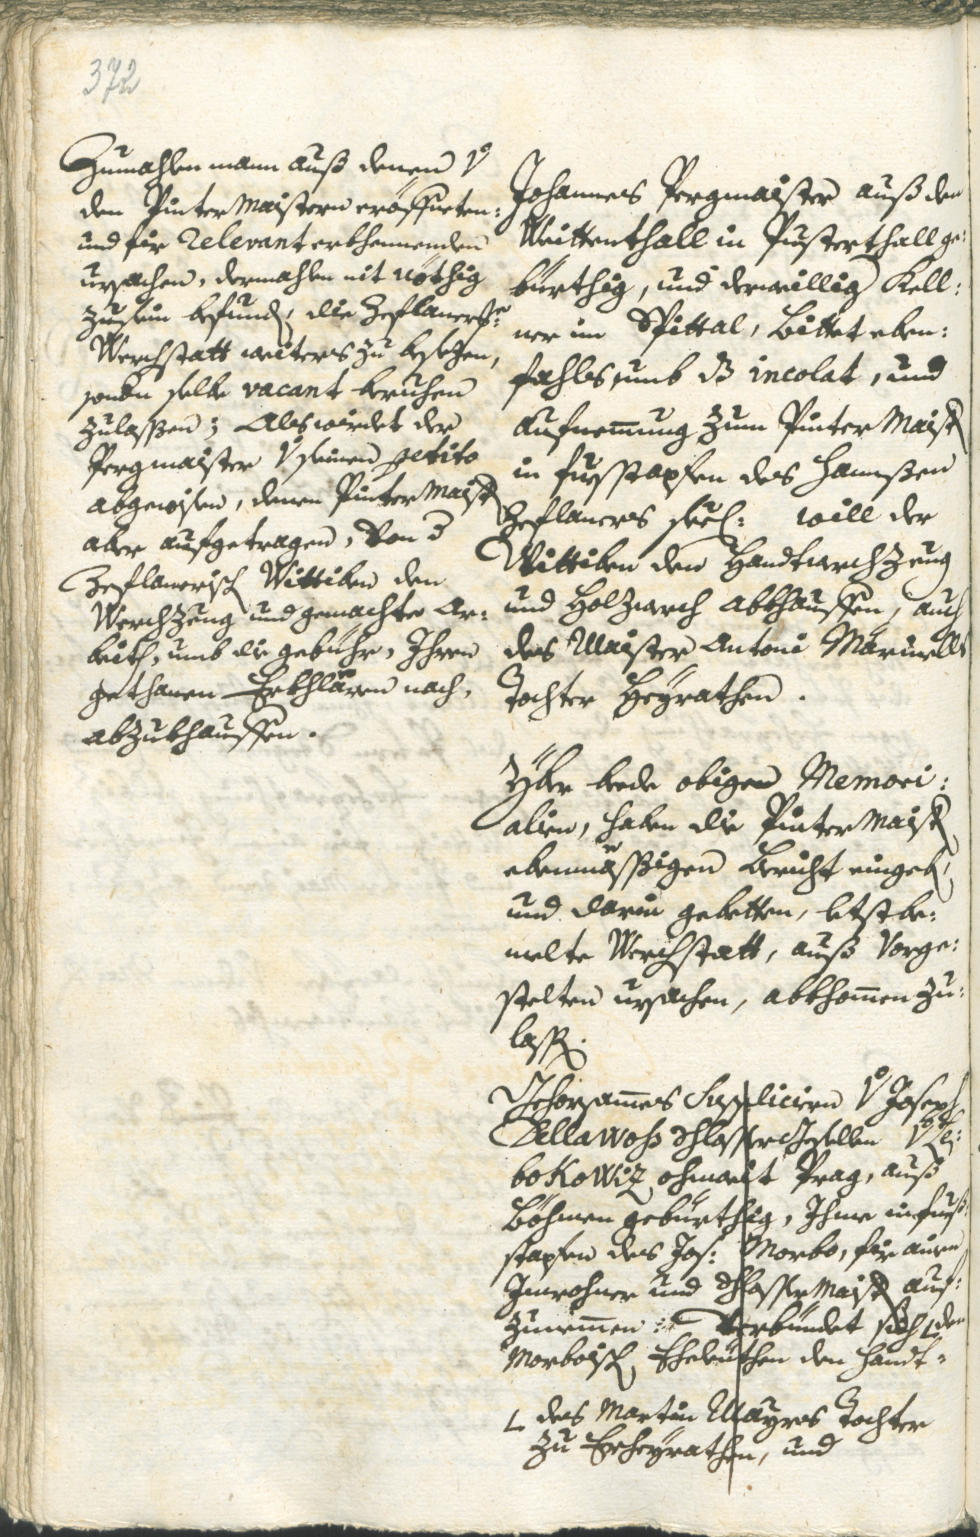 372
Zumahlen mann auß denen V̊
den Pinter Maistern eröffneten:
und für Relevant erkhennenden
ursachen, dermahlen nit nöthig
zu sein befund, die Zeflanerse:
Werchstatt weiters zu besezen,
sondern selbe vacant beruhen
zulaßen; Als würdet der
Pergmaister V seinem petito
abgewisen, denen Pinter Maist
aber aufgetragen, von d
Zeflanerisch Wittiben den
Werchzeug und gemachte Ar:
beith, umb die gebühr, Ihren
gethanen Erkhlären nach,
abzukhauffen.
Johannes Pergmaister auß den
Weittenthall in Pusterthall ge:
bürthig, und derweillig Kell:
ner im Spittal, bittet eben:
fahls umb dz incolat, und
Aufnemung zum Pinter Maist
in fusstapfen des hannßen
Zeflaners seel: will der
Wittiben den Handtwerchzeug
und Holzwerch abkhauffen, auch
des Maister Antoni Maruelli
Tochter Heyrathen.
Yber bede obigen Memori:
alien, haben die Pinter Maist
ebenmässigen bericht eingeb,
und darin gebetten, letstbe:
melte Werchstatt, auß Vorge:
stelten ursachen, abkhomen zu:
lass.
Gehorsames Supplicirn V̊ Joseph
Allawoß Schlosser Gesellen V̊
bokowiz ohnweit Prag, auß
Böhmen gebürthig, Ihme in fuß
stapfen des Jos: Morbo, für ainen
Inwohner und Schlosser Maist auf:
zunemen: Verbündet sich ∟ den
Morboisch Eheleüthen den handt:
∟ des Martin Mayrs Tochter
zu Erheyrathen, und